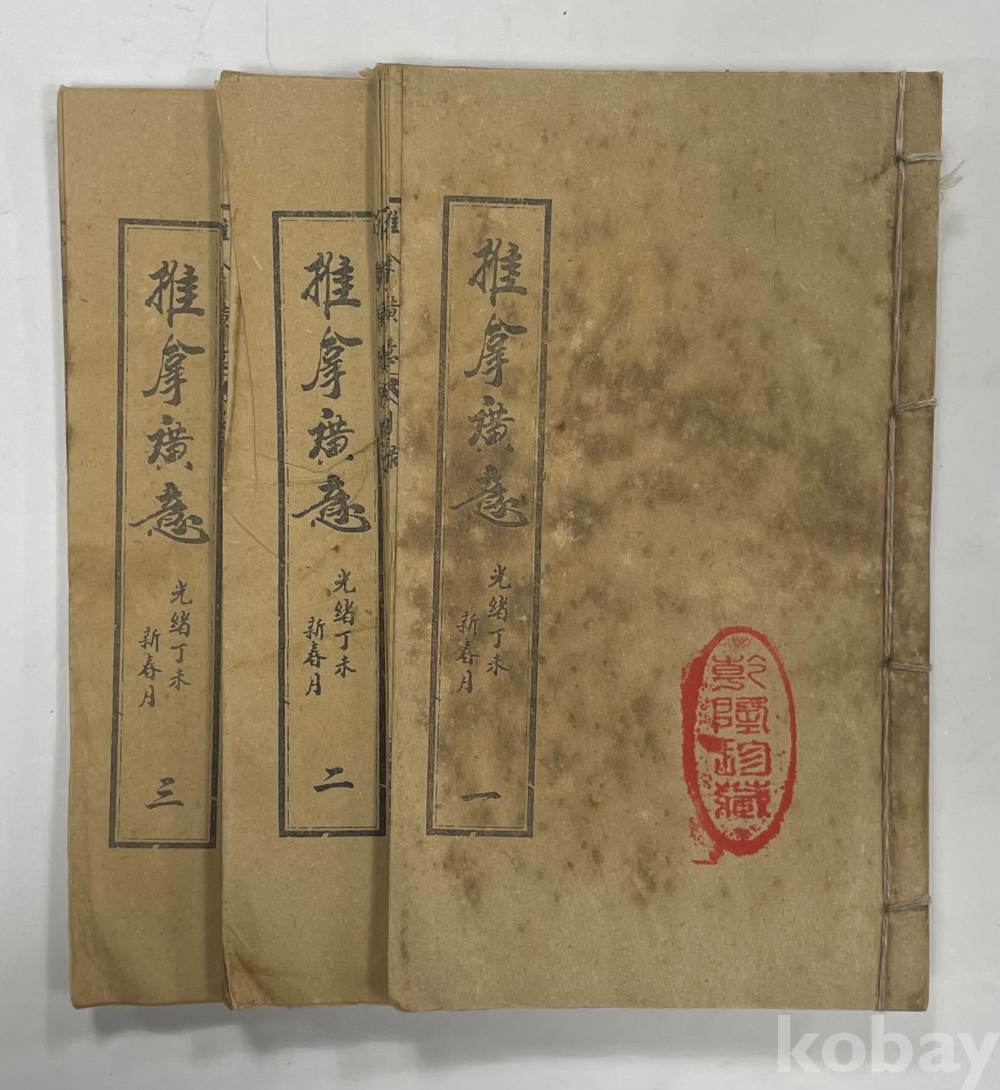 推拿廣意
光緒丁未
新春月
一
乾隆珍藏
推拿廣意
光緒丁未
新春月
二
推拿廣意
光緒丁未
新春月
三
kobay